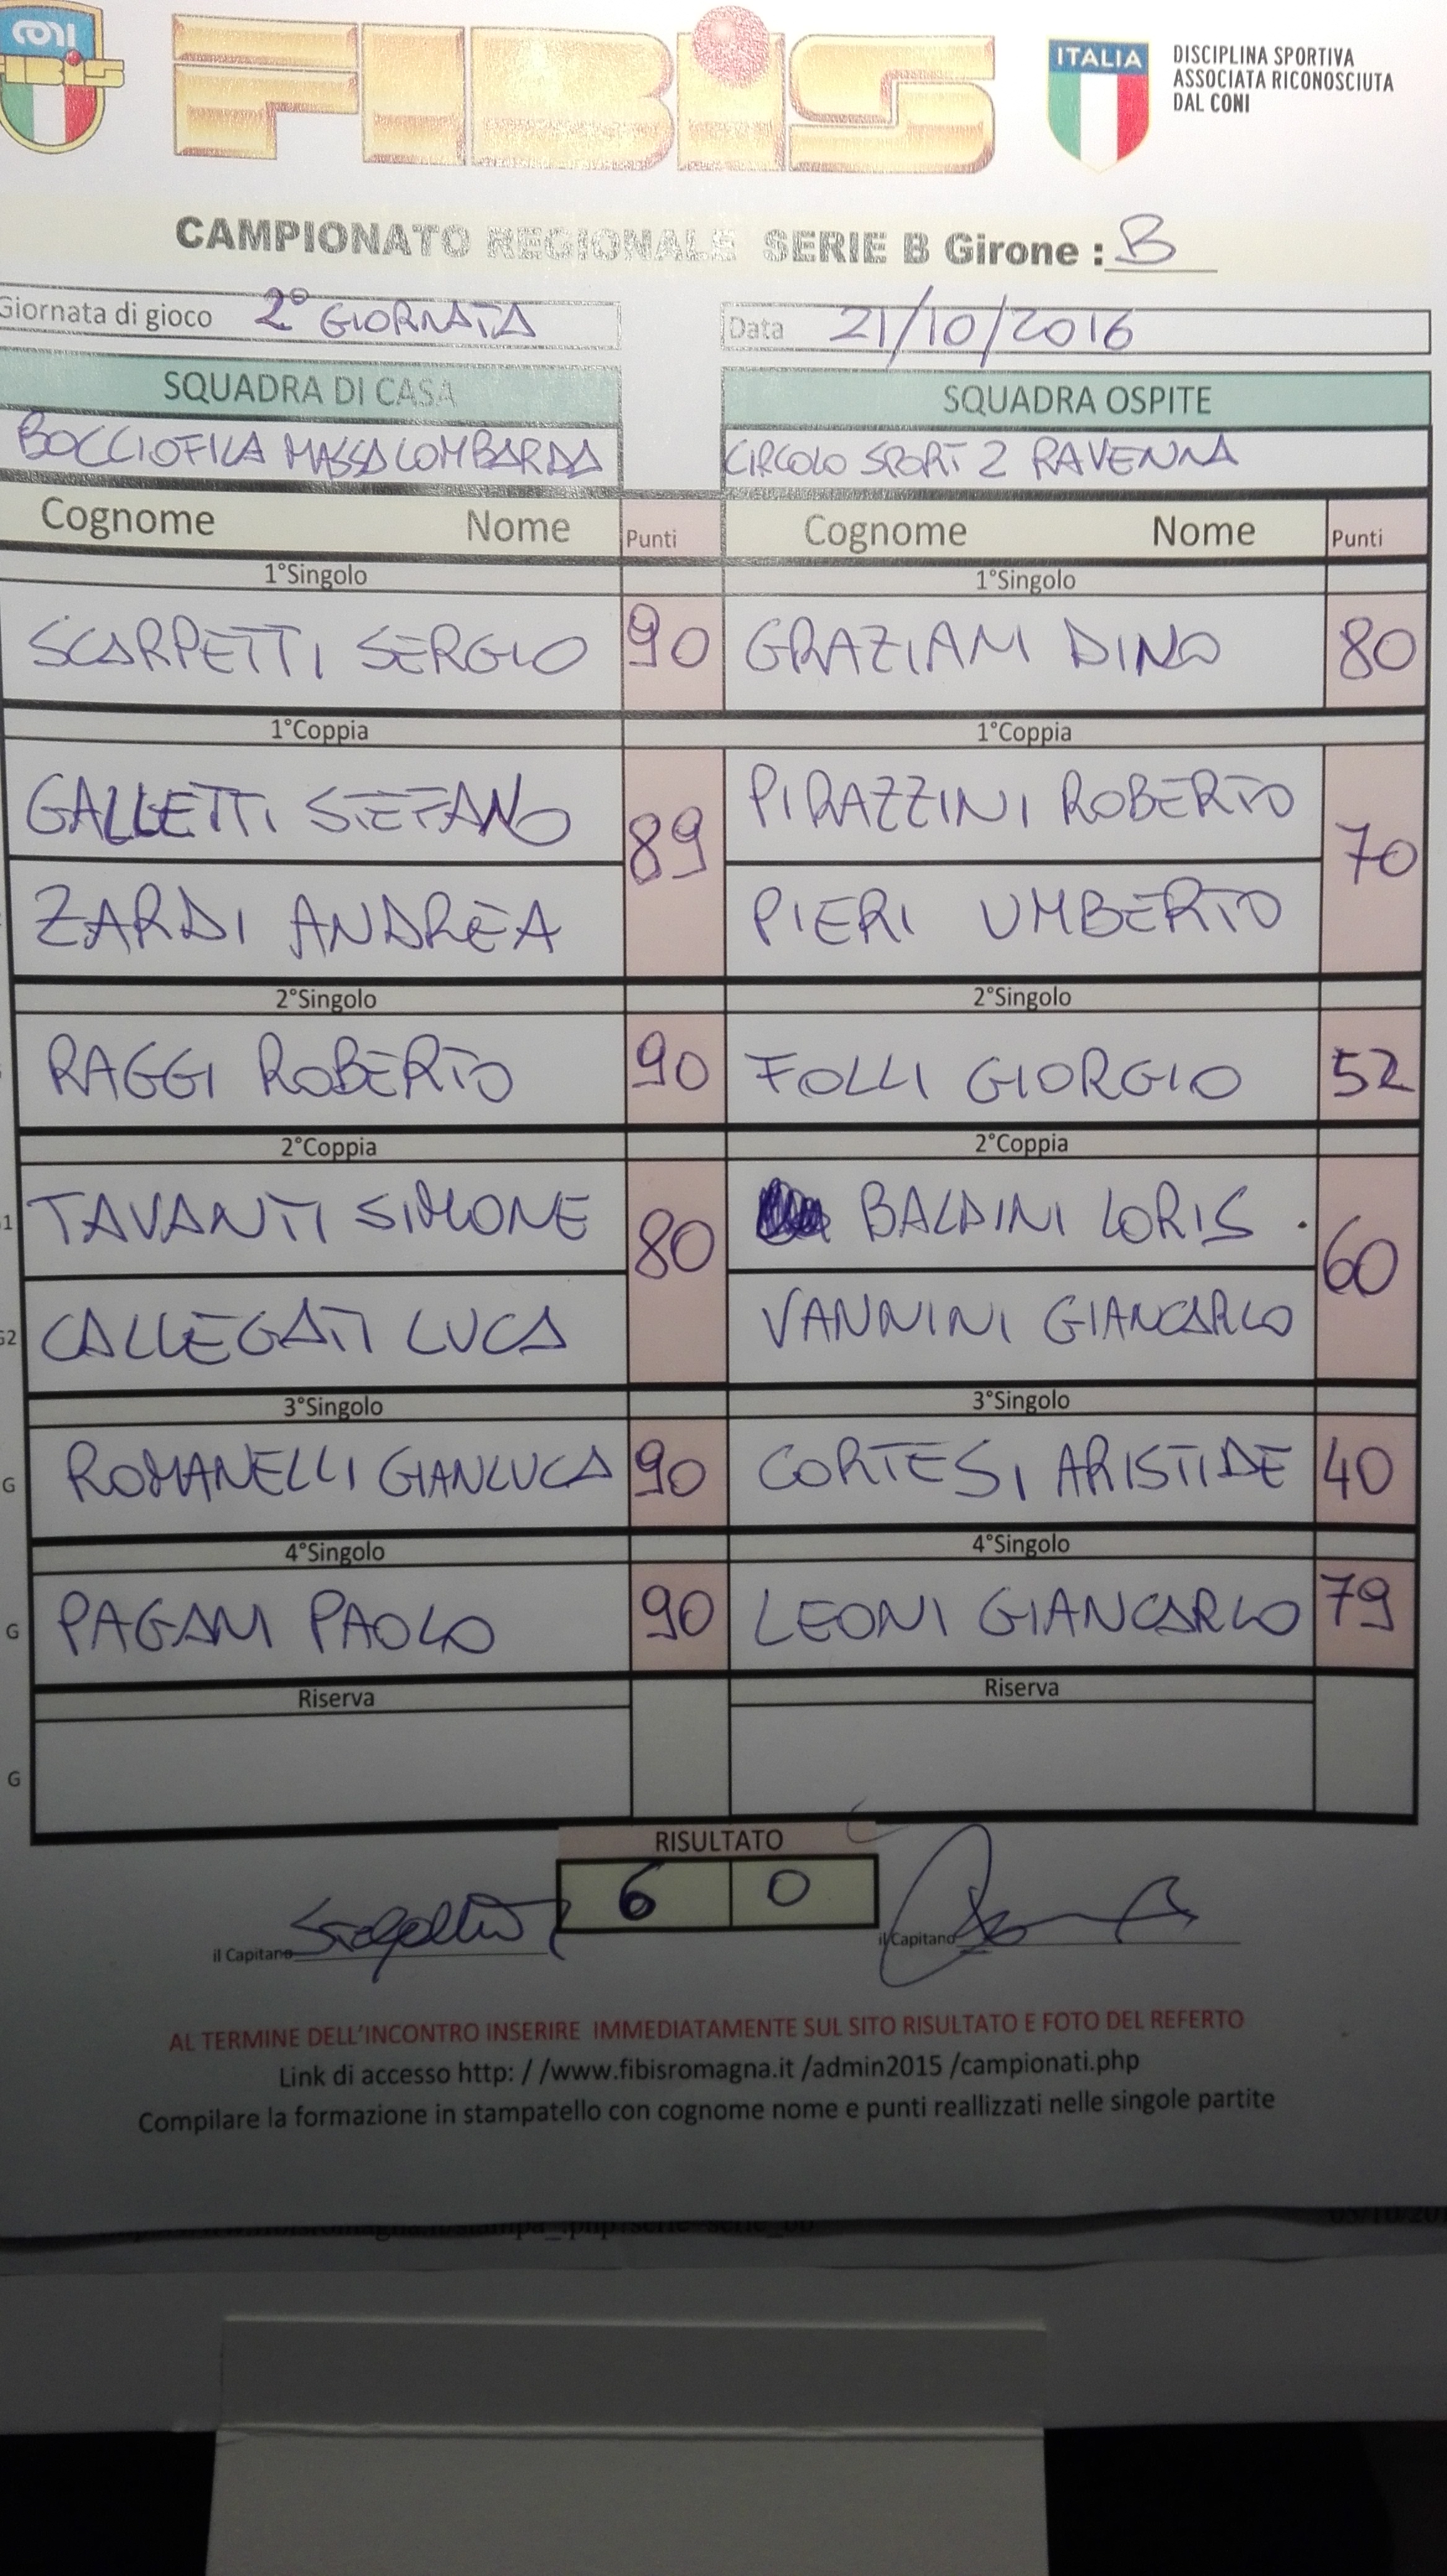 CONI
FIBiS
FIBiS
ITALIA
DISCIPLINA SPORTIVA
ASSOCIATA RICONOSCIUTA
DAL CONI
CAMPIONATO REGIONALE SERIE B Girone : B
Giornata di gioco 2° GIORNATA Data 21/10/2016
SQUADRA DI CASA SQUADRA OSPITE
BOCCIOFILA MASSA LOMBARDA CIRCOLO SPORT 2 RAVENNA
Cognome Nome Punti Cognome Nome Punti
1°Singolo 1°Singolo
SCARPETTI SERGIO 90 GRAZIANI DINO 80
1°Coppia 1°Coppia
GALLETTI STEFANO 89 PIRAZZINI ROBERTO 70
ZARDI ANDREA PIERI UMBERTO
2°Singolo 2°Singolo
RAGGI ROBERTO 90 FOLLI GIORGIO 52
2°Coppia 2°Coppia
TAVANTI SIMONE 80 BALDINI LORIS 60
CALLEGATI LUCA VANNINI GIANCARLO
3°Singolo 3°Singolo
G ROMANELLI GIANLUCA 90 CORTESI ARISTIDE 40
4°Singolo 4°Singolo
G PAGANI PAOLO 90 LEONI GIANCARLO 79
Riserva Riserva
G
RISULTATO
6 0
il Capitano il Capitano
AL TERMINE DELL'INCONTRO INSERIRE IMMEDIATAMENTE SUL SITO RISULTATO E FOTO DEL REFERTO
Link di accesso http: / /www.fibisromagna.it /admin2015 /campionati.php
Compilare la formazione in stampatello con cognome nome e punti reallizzati nelle singole partite